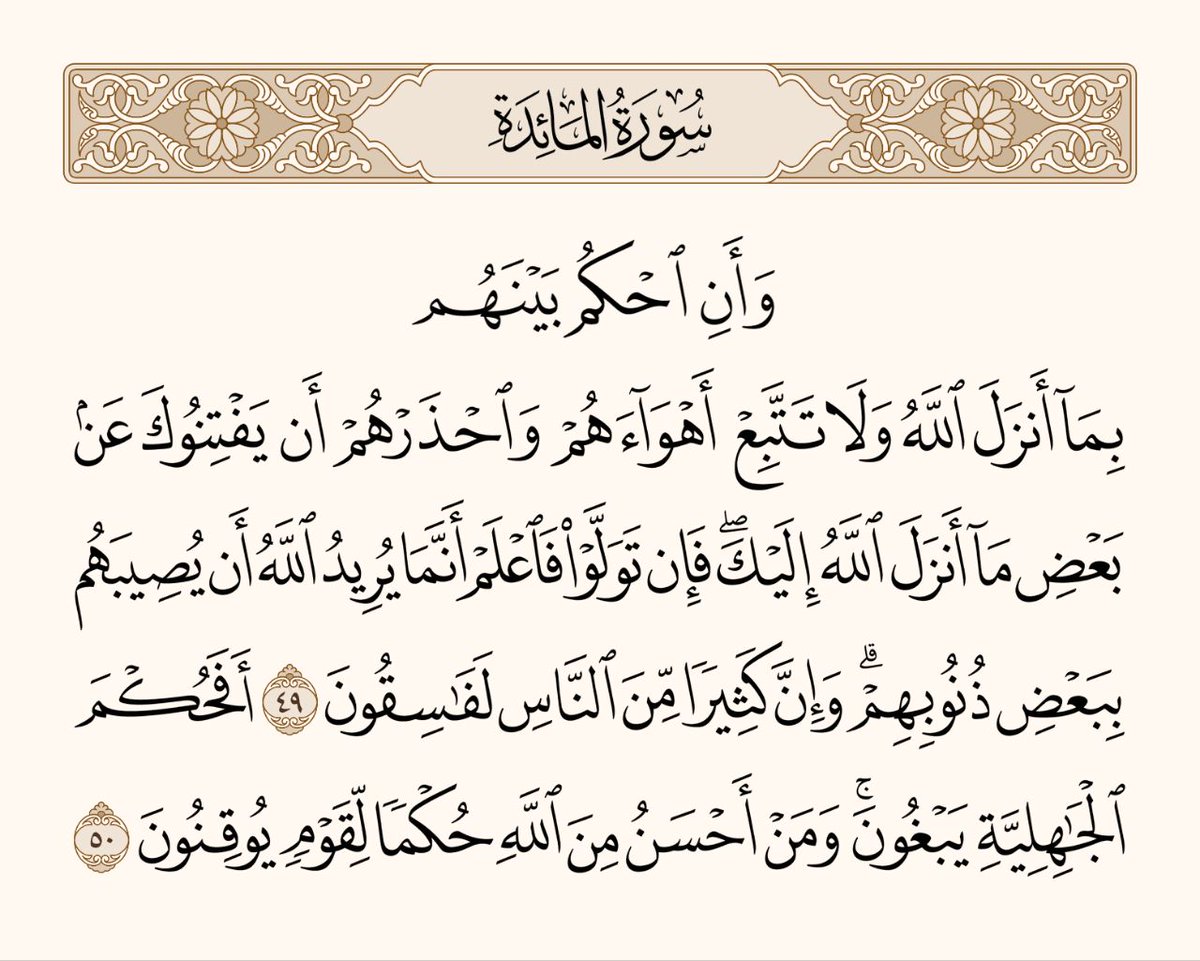 سُورَةُ المَائِدَةِ
وَأَنِ ٱحْكُم بَيْنَهُم
بِمَآ أَنزَلَ ٱللَّهُ وَلَا تَتَّبِعْ أَهْوَآءَهُمْ وَٱحْذَرْهُمْ أَن يَفْتِنُوكَ عَنۢ
بَعْضِ مَآ أَنزَلَ ٱللَّهُ إِلَيْكَۖ فَإِن تَوَلَّوْا۟ فَٱعْلَمْ أَنَّمَا يُرِيدُ ٱللَّهُ أَن يُصِيبَهُم
بِبَعْضِ ذُنُوبِهِمْۗ وَإِنَّ كَثِيرًا مِّنَ ٱلنَّاسِ لَفَـٰسِقُونَ ٤٩ أَفَحُكْمَ
ٱلْجَـٰهِلِيَّةِ يَبْغُونَۚ وَمَنْ أَحْسَنُ مِنَ ٱللَّهِ حُكْمًا لِّقَوْمٍ يُوقِنُونَ ٥٠